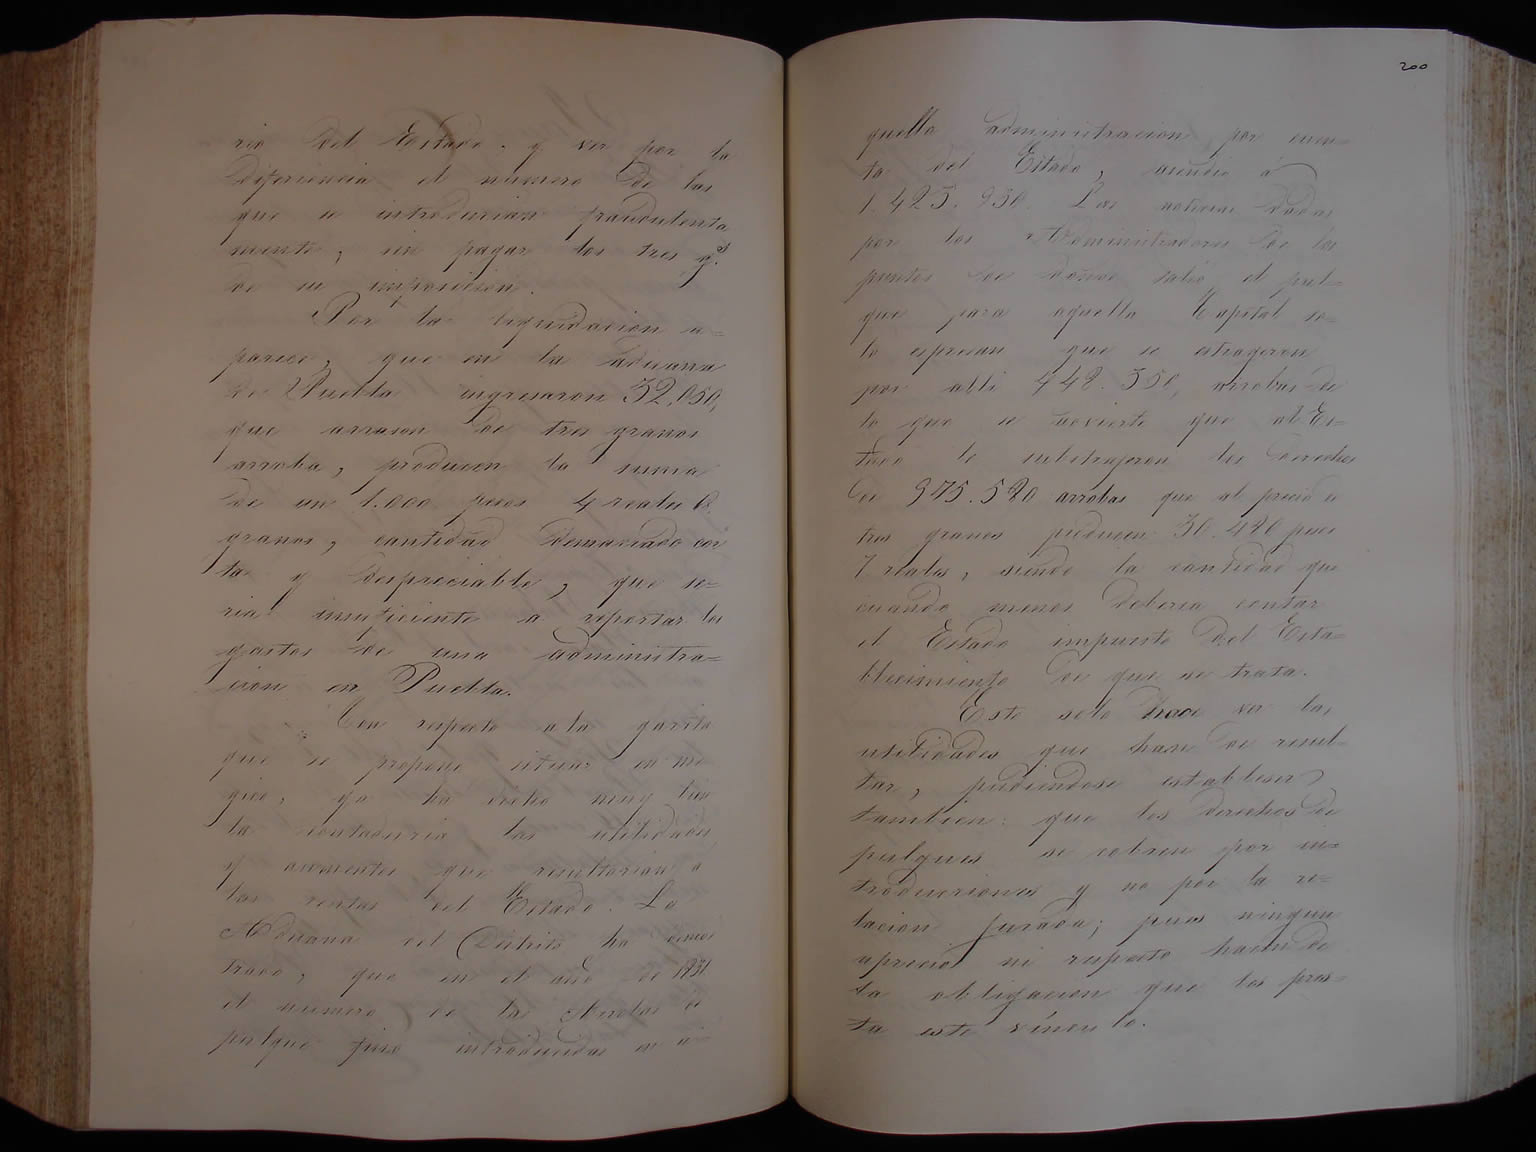 rio del Estado. y ver por la
diferiencia el numero de las
que se introducian fraudulenta
mente, sin pagar los tres g.s
de su imposicion.
Por la liquidacion a=
parece, que en la aduana
de Puebla ingresaron 32,050,
que arrason de tres granos
arroba, producen la suma
de un 1.000 pesos 4 reales 6.
granos, cantidad demaciado cor
ta y despreciable, que se=
ria insuficiente a reportar los
gastos de una administra=
cion en Puebla.
Con respecto a la garita
que se propone situar en Me
gico, ya ha dicho muy bien
la contaduria las utilidades
y aumentos que resultarian á
las rentas del Estado. La
Aduana del Distrito ha demos
trado, que en el año de 1831
el numero de las Arrobas de
pulque fino introducidas en a=
200
quella administracion por cuen=
ta del Estado, asendio á
1.423.930. Las noticias dadas
por los Administradores de los
puntos de donde salio el pul=
que para aquella Capital so=
lo espresan que se estrageron
por alli 448.350, arrobas de
lo que se advierte que al Es=
tado le substrageron los derechos
de 975.580 arrobas que al precio de
tres granos producen 30.480 pesos
7 reales, siendo la cantidad que
cuando menos deberia contar
el Estado impuesto del Esta=
blecimiento de que se trata.
Esto solo hace ver las
utilidades que han de resul=
tar, pudiendose establecer
tambien: que los derechos de
pulques se cobren por in=
troducciones y no por la re=
lacion jurada; pues ningun
aprecio ni respecto hacen de
la obligacion que los pres=
ta este vínculo.